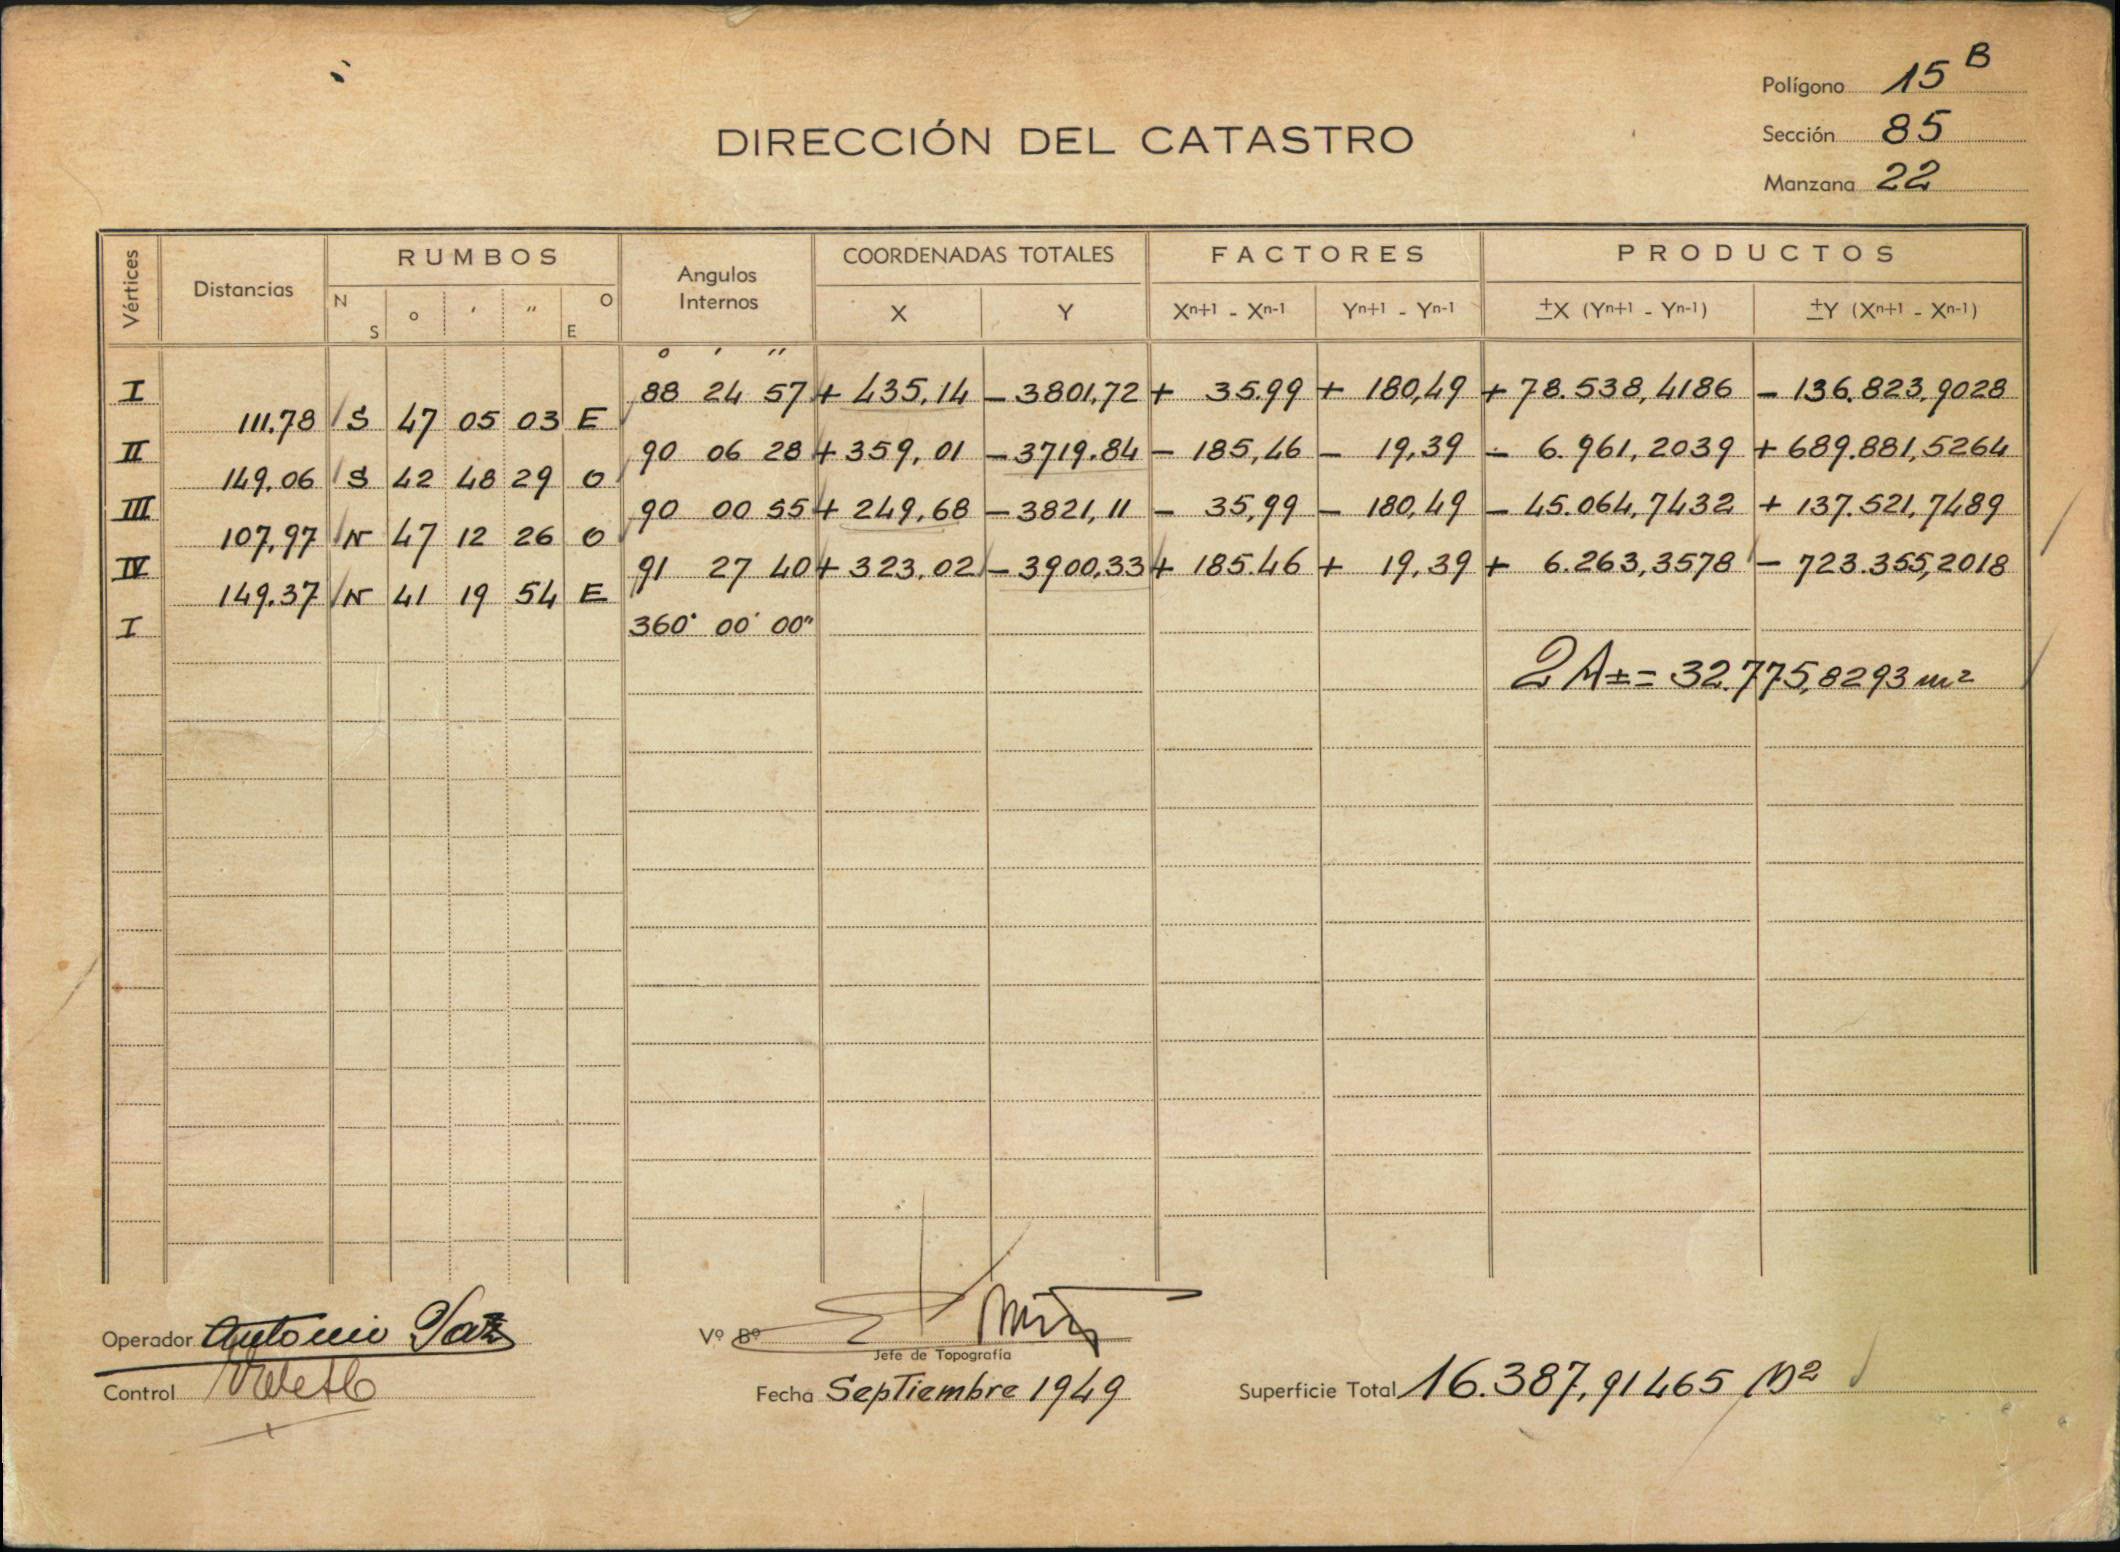 Polígono 15 B
DIRECCIÓN DEL CATASTRO
Sección 85
Manzana 22
Vértices Distancias RUMBOS Angulos Internos COORDENADAS TOTALES FACTORES PRODUCTOS
N S o ' " O E X Y Xn+1 - Xn-1 Yn+1 - Yn-1 ±X (Yn+1 - Yn-1) ±Y (Xn+1 - Xn-1)
o ' "
I 88 24 57 + 435,14 - 3801,72 + 35.99 + 180,49 + 78.538,4186 - 136.823,9028
111.78 S 47 05 03 E
II 90 06 28 + 359,01 - 3719.84 - 185,46 - 19,39 - 6.961,2039 + 689.881,5264
149.06 S 42 48 29 O
III 90 00 55 + 249,68 - 3821,11 - 35,99 - 180,49 - 45.064,7432 + 137.521,7489
107,97 N 47 12 26 O
IV 91 27 40 + 323,02 - 3900,33 + 185.46 + 19,39 + 6.263,3578 - 723.355,2018
149.37 N 41 19 54 E
I 360° 00' 00"
2A± = 32.775,8293 m2
Operador Antonio
Vº Bº
Jefe de Topografía
Control
Fecha Septiembre 1949
Superficie Total 16.387,91465 M2